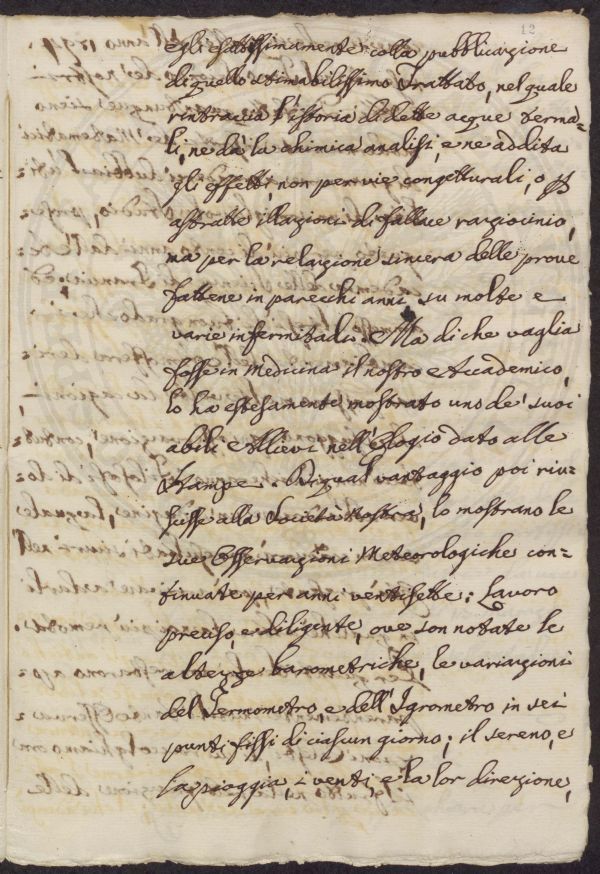 12
egli esattissimamente colla pubblicazione
di quello stimabilissimo Trattato, nel quale
rintraccia l'istoria di dette acque Terma=
li, ne dà la chimica analisi, e ne addita
gli effetti, non per vie congetturali, o p
astratte illazioni di fallace raziocinio,
ma per la relazione sincera delle prove
fattene in parecchi anni su molte e
varie infermitadi. Ma di che vaglia
fosse in Medicina il nostro Accademico,
lo ha estesamente mostrato uno de' suoi
abili Allievi nell'Elogio dato alle
Stampe. Di qual vantaggio poi riu=
scisse alla Società Nostra, lo mostrano le
sue Osservazioni Meteorologiche con=
tinuate per anni ventisette: Lavoro
preciso, e diligente, ove son notate le
altezze barometriche, le variazioni
del Termometro, e dell'Igrometro in sei
punti fissi di ciascun giorno; il sereno, e
la pioggia, i venti, e la lor direzione,